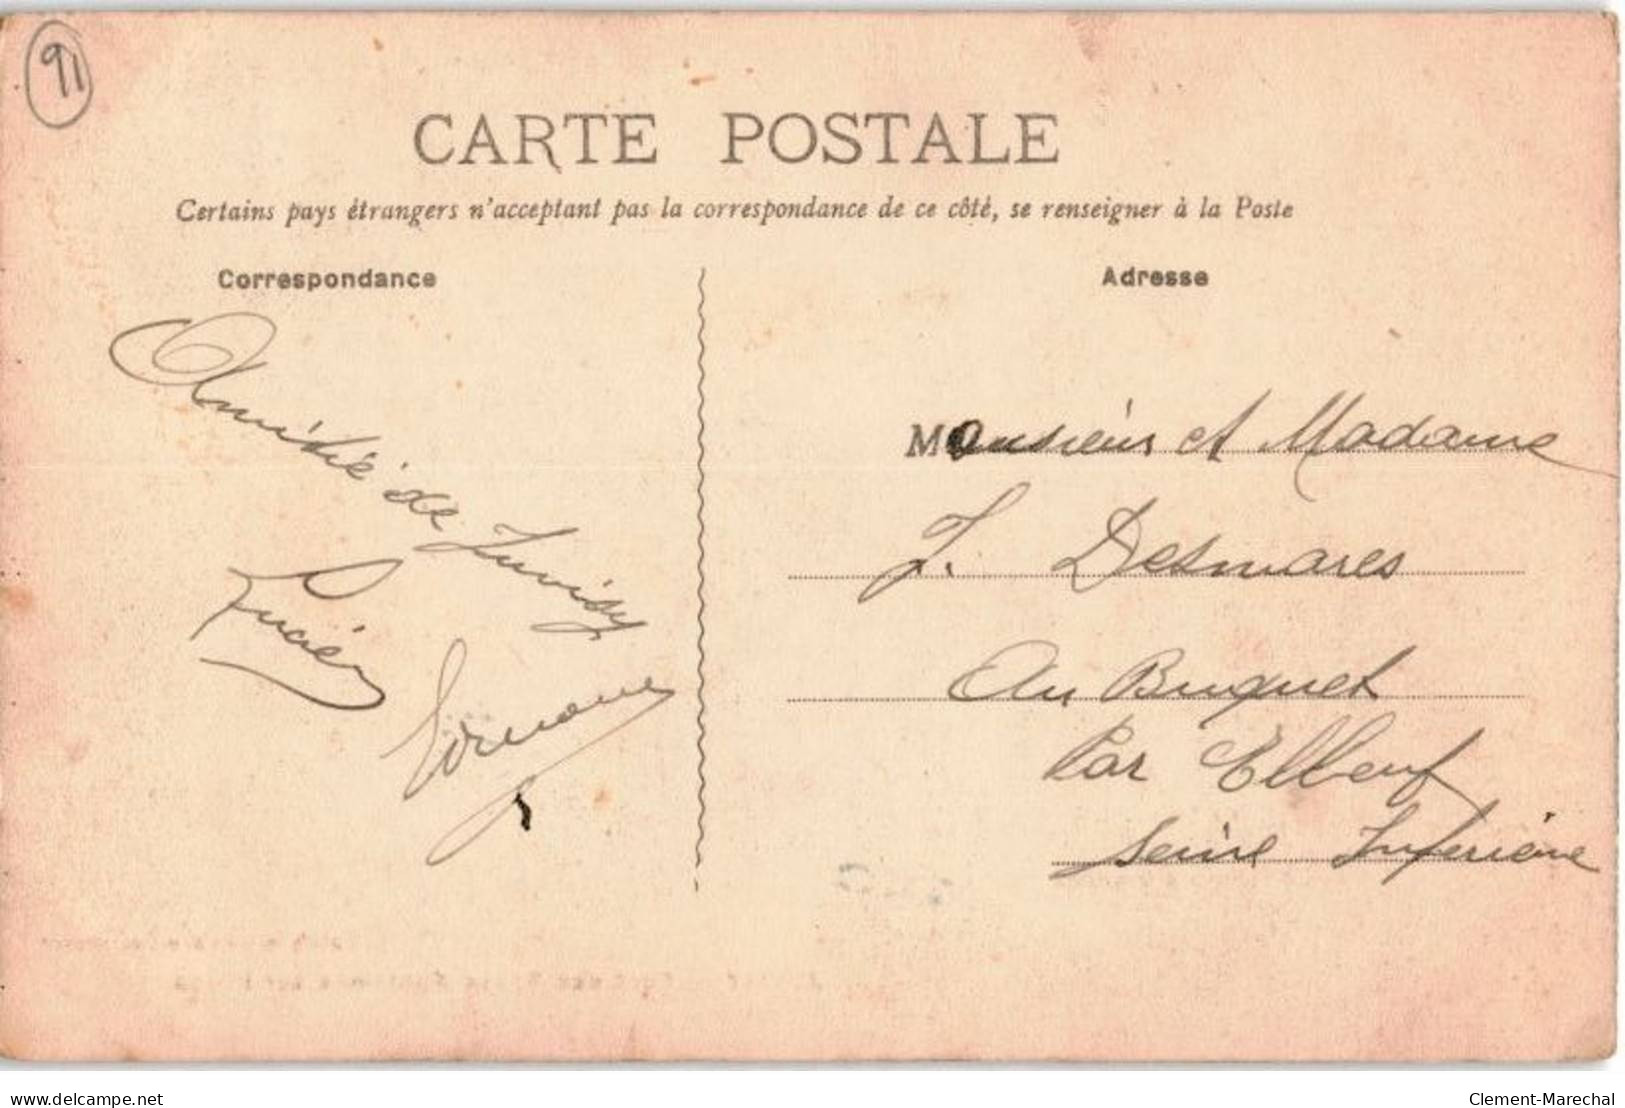 91
CARTE POSTALE
Certains pays étrangers n'acceptant pas la correspondance de ce côté, se renseigner à la Poste
Correspondance
Adresse
Amitié de Juvisy
Lucien
Monsieur et Madame
J. Desmares
Au Buquet
Par Elbeuf
Seine Inferieure
www.delcampe.net
Clement-Marechal